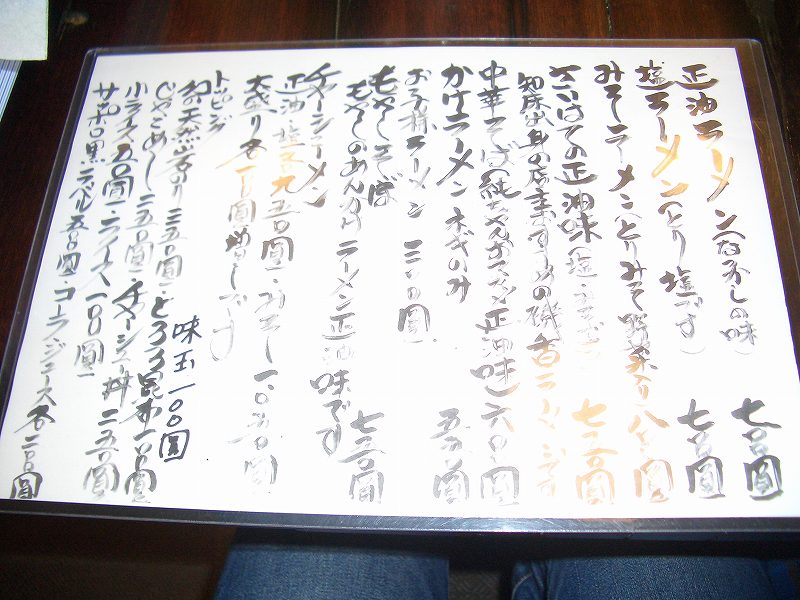 正油ラーメン(なつかしの味) 七〇〇圓
塩ラーメン(とり塩です) 七〇〇圓
みそラーメン(とりみそ野菜入り) 八〇〇圓
さいはての正油味(塩・
知床出身の店主おすすめの磯香ラーメンです
中華そば(純ちゃんおススメ正油味) 六〇〇圓
かけラーメン ネギのみ 五五〇圓
お子様ラーメン 三〇〇圓
もやしそば
もやしのあんかけラーメン正油味です 七三〇圓
チャーシューメン
正油・塩 各九五〇圓・みそ一、〇五〇圓
大盛り各一〇〇圓増しです
トッピング 味玉一〇〇圓
幻の天然岩のり二五〇圓・とろろ昆布一〇〇圓
じゃこめし二五〇圓・チャーシュー丼二五〇圓
小ライス五〇圓・ライス一〇〇圓
サッポロ黒ラベル五〇〇圓・コーラ・ジュース各二〇〇圓